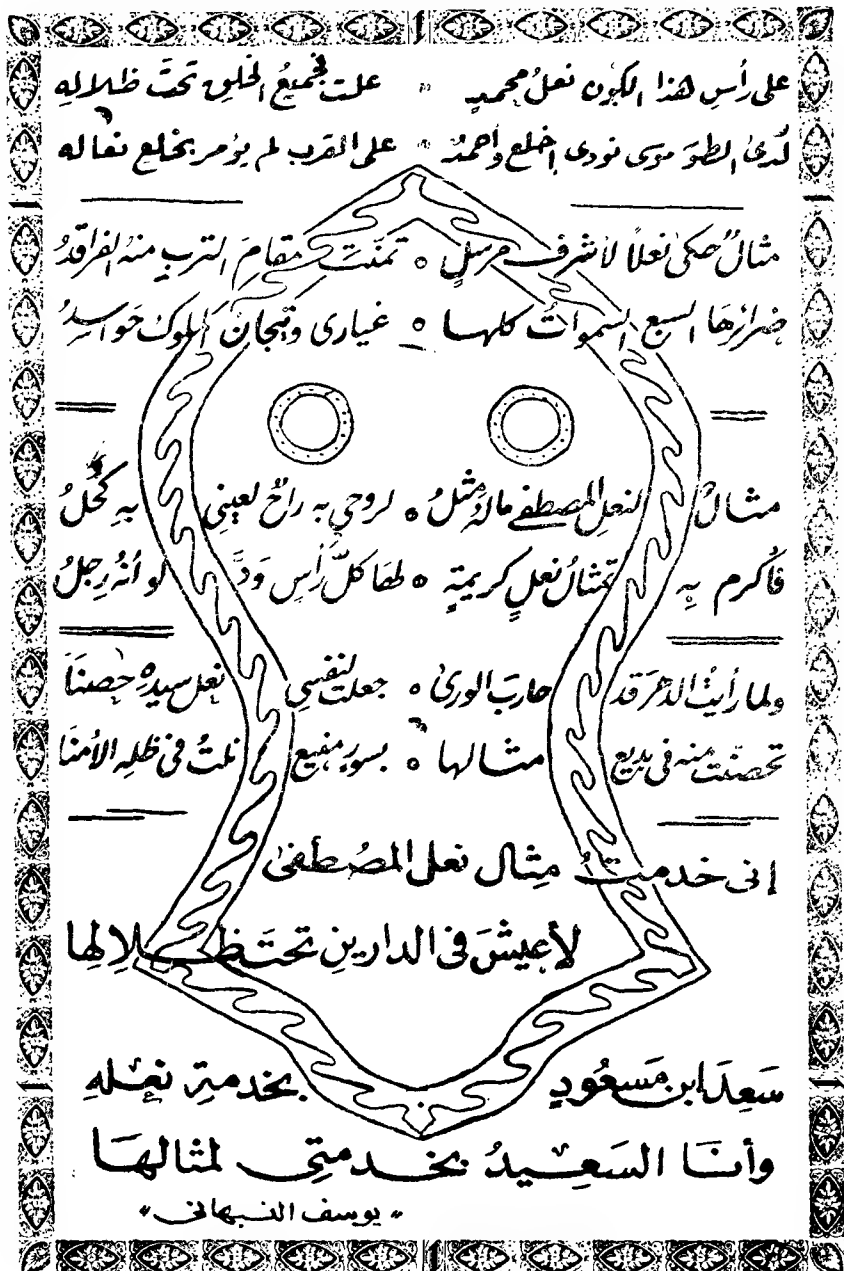 على رأس هذا الكون نعل محمد * علت فجميع الخلق تحت ظلاله
لدى الطور موسى نودي اخلع وأحمد * على القرب لم يؤمر بخلع نعاله
مثال حكى نعلاً لأشرف مرسل ° تمنت مقام الترب منه الفراقد
ضرائرها السبع السموات كلها ° غيارى وتيجان الملوك حواسد
مثال لنعل المصطفى ماله مثل ° لروحي به راح لعيني به كحل
فأكرم به تمثال نعل كريمة ° لها كل رأس ود لو أنه رجل
ولما رأيت الدهر قد حارب الورى ° جعلت لنفسي نعل سيده حصنا
تحصنت منه في بديع مثالها ° بسور منيع نلت في ظله الأمنا
إنى خدمت مثال نعل المصطفى
لأعيش في الدارين تحت ظلالها
سعد ابن مسعود بخدمة نعله
وأنا السعيد بخدمتي لمثالها
"يوسف النبهاني"